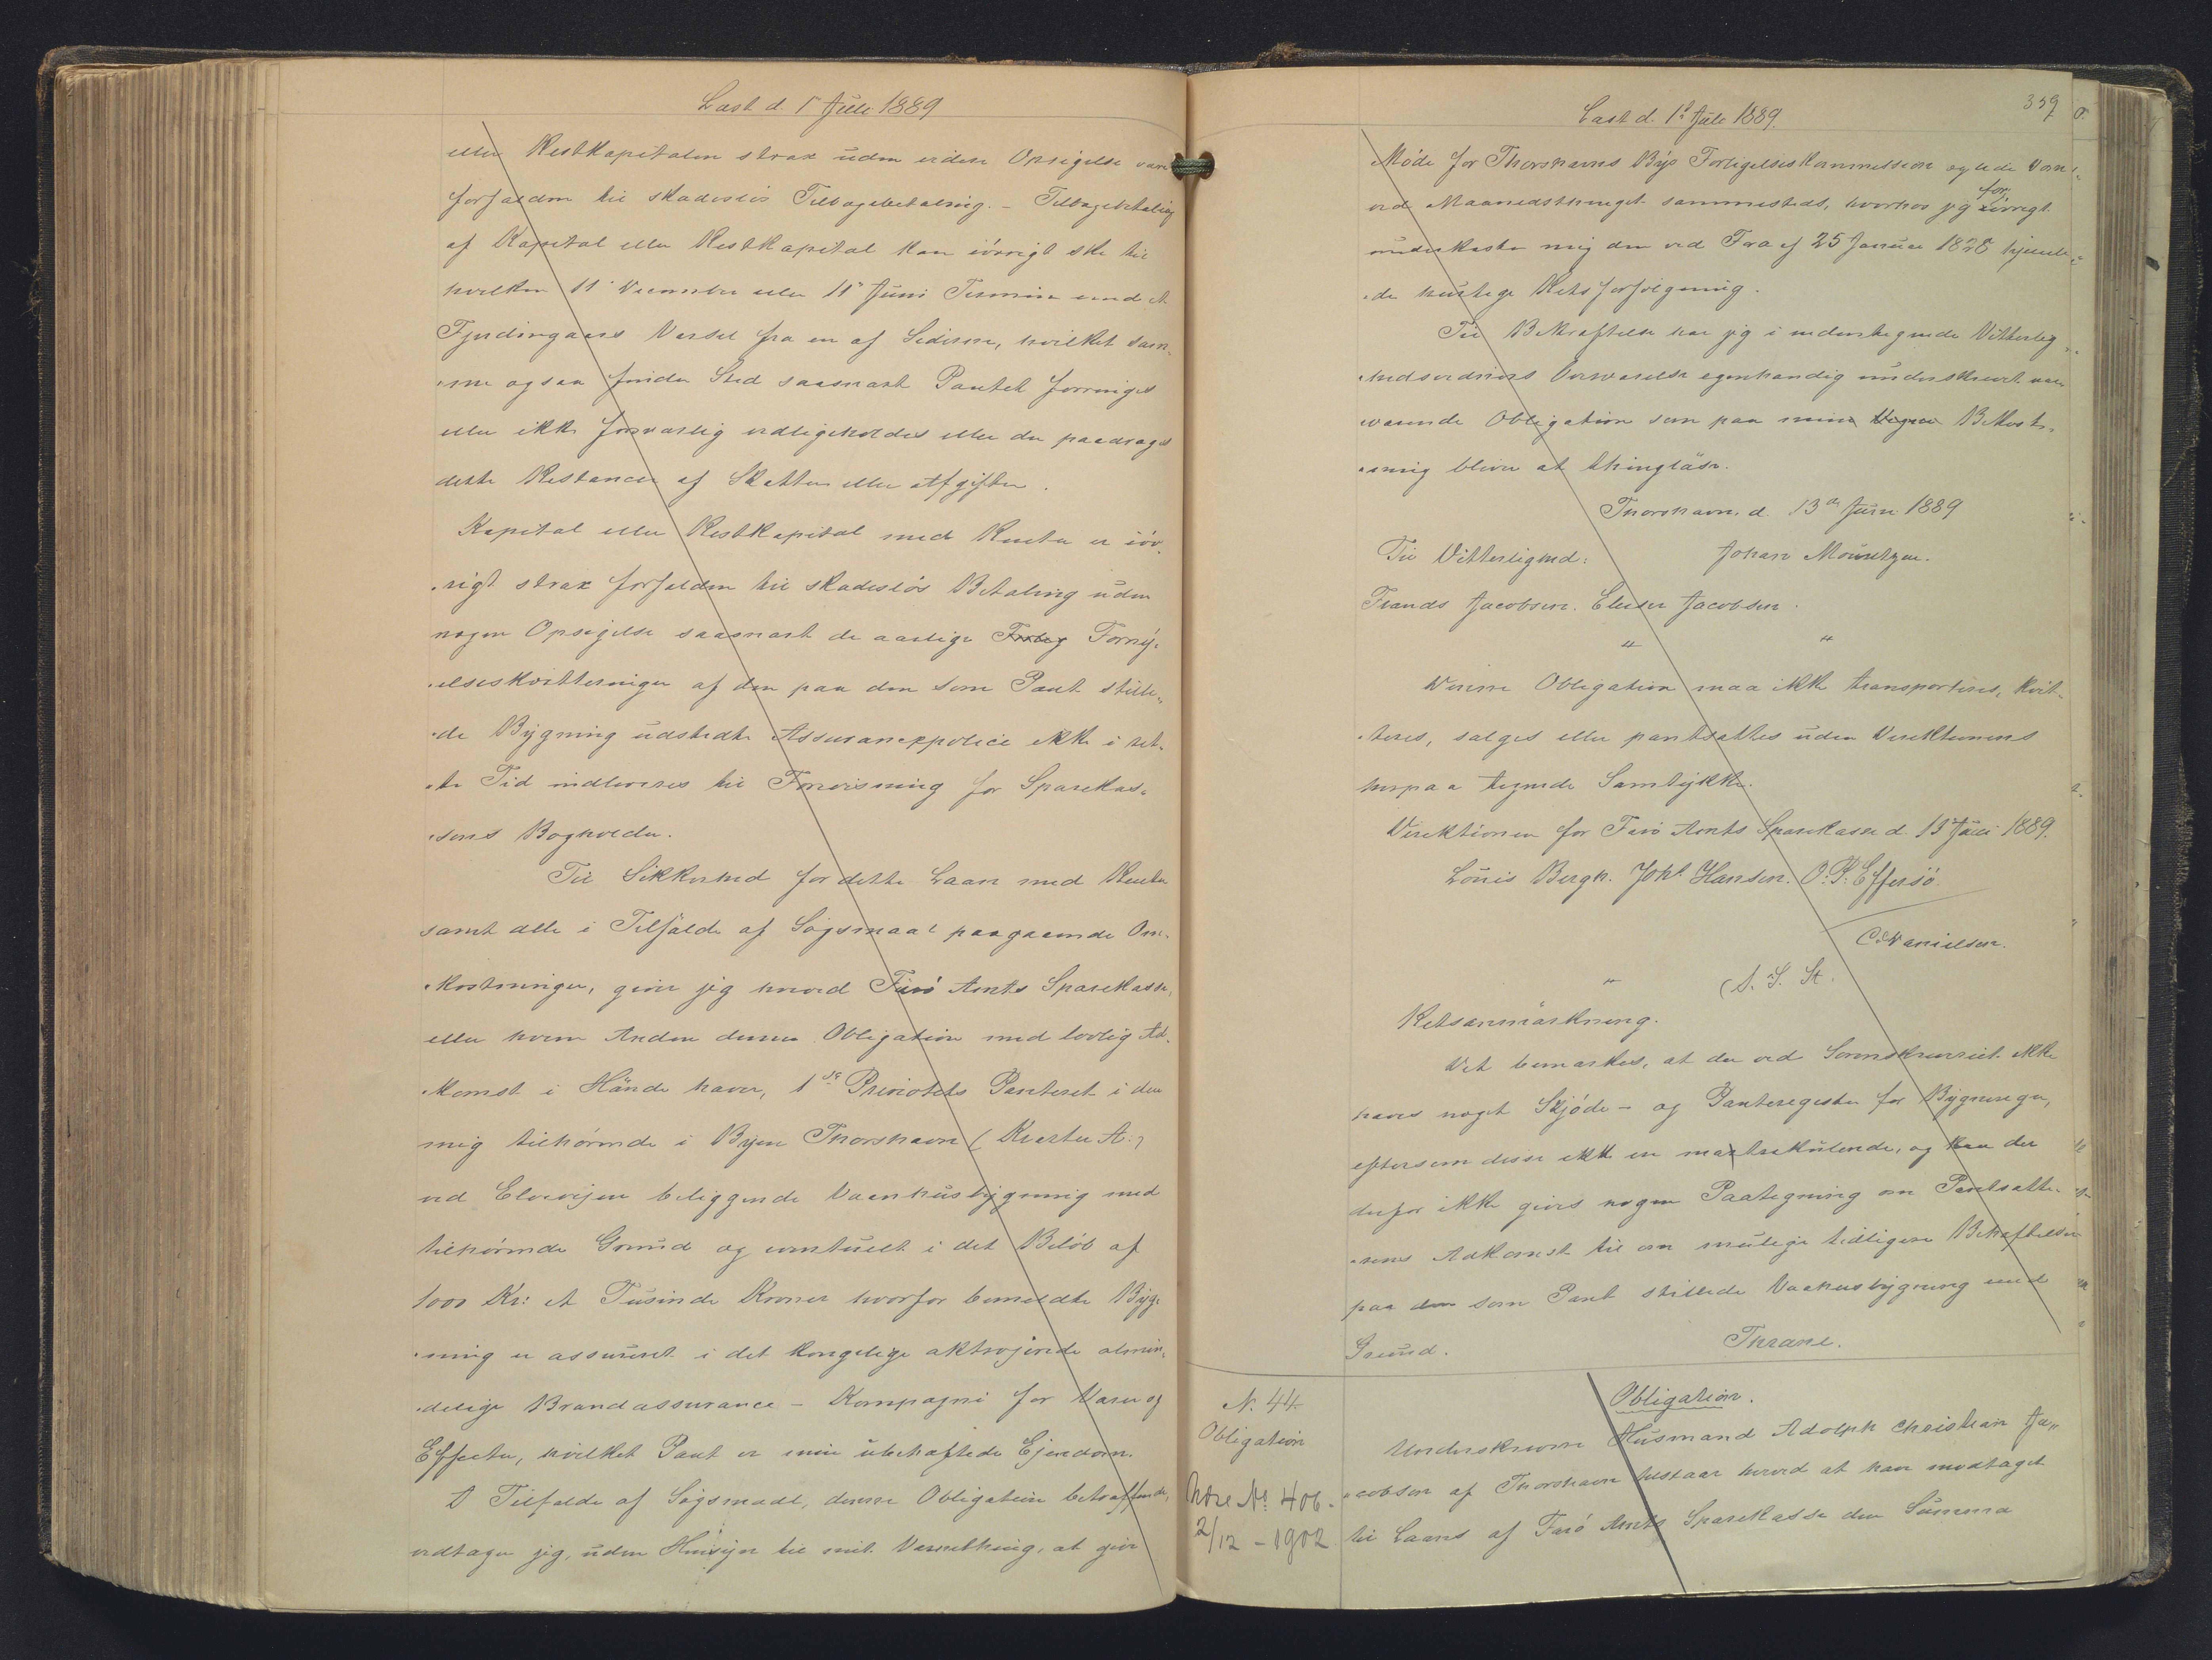 Læst d. 1' Juli 1889
eller Restkapitalen strax uden videre Opsigelse være
forfalden til skadeslös Tilbagebetaling. - Tilbagebetaling
af Kapital eller Restkapital kan iövrigt ske til
hvilken 11' December eller 11' Juni Termin med et
Fjerdingaars Varsel fra en af Siderne, hvilket sam-
me ogsaa finder Sted saasnart Pantet forringes
eller ikke forsvarlig vedligeholdes eller der paadrages
dette Restancer af Skatter eller Afgifter.
Kapital eller Restkapital med Renter er iöv-
rigt strax forfalden til skadeslös Betaling uden
nogen Opsigelse saasnart de aarlige Forny-
elseskvitteringer af den paa den som Pant stille-
de Bygning udstedte Assurancepolice ikke i ret-
te Tid indleveres til Forevisning for Sparekas-
sens Bogholder.
Til Sikkerhed for dette Laan med Renter
samt alle i Tilfælde af Sögsmaal paagaaende Om-
kostninger, giver jeg herved Færö Amts Sparekasse,
eller hvem Anden denne Obligation med lovlig Ad-
komst i Hænde haver, 1ste Prioritets Panteret i den
mig tilhörende i Byen Thorshavn (Kvarter A:)
ved Elvevejen beliggende Vaanhusbygning med
tilhörende Grund og eventuelt i det Belöb af
1000 Kr: et Tusinde Kroner hvorfor bemeldte Byg-
ning er assureret i det kongelige oktrojerede almin-
delige Brandassurance - Kompagni for Varer og
Effecter, hvilket Pant er min ubehæftede Ejendom.
I Tilfælde af Sögsmaal, denne Obligation betræffende,
vedtager jeg, uden Hensyn til mit Værnething, at give
Læst d. 1' Juli 1889.
359
Möde for Thorshavns Bys Forligelseskommission og lide Dom
ved Maanedsthinget sammesteds, hvorhos jeg for övrigt
underkaster mig den ved Fra af 25 Januar 1828 hjemle-
de hurtige Retsforfölgning.
Til Bekræftelse har jeg i undertegnede Vitterlig-
hedsvidners Overværelse egenhændig underskrevet nær-
værende Obligation som paa min Bekost-
ning bliver at thinglæse.
Thorshavn. d. 13de Juni 1889
Til Vitterlighed:
Johan Mouritzen.
Frands Jacobsen. Elieser Jacobsen.
" "
Denne Obligation maa ikke transporteres, kvit-
teres, sælges eller pantsættes uden Direktionens
herpaa tegnede Samtykke.
Direktionen for Færö Amts Sparekasse d. 13' Juni 1889.
Louis Bergh. Johs Hansen. O. P. Effersö.
C. Danielsen.
" (S. S. St.
Retsanmærkning.
Det bemærkes, at der ved Sorenskriveriet ikke
haves noget Skjöde - og Panteregister for Bygninger,
eftersom disse ikke ere matrikulerede, og kan der
derfor ikke gives nogen Paategning om Pantsætte-
rens Adkomst til om mulige tidligere Behæftelser
paa den som Pant stillede Vaanhusbygning med
Grund. Thrane.
N. 44.
Obligation
No. 406.
2/12 - 1902
Obligation.
Underskrevne Husmand Adolph Christian Ja-
cobsen af Thorshavn tilstaar herved at have modtaget
til Laans af Færö Amts Sparekasse den Summa